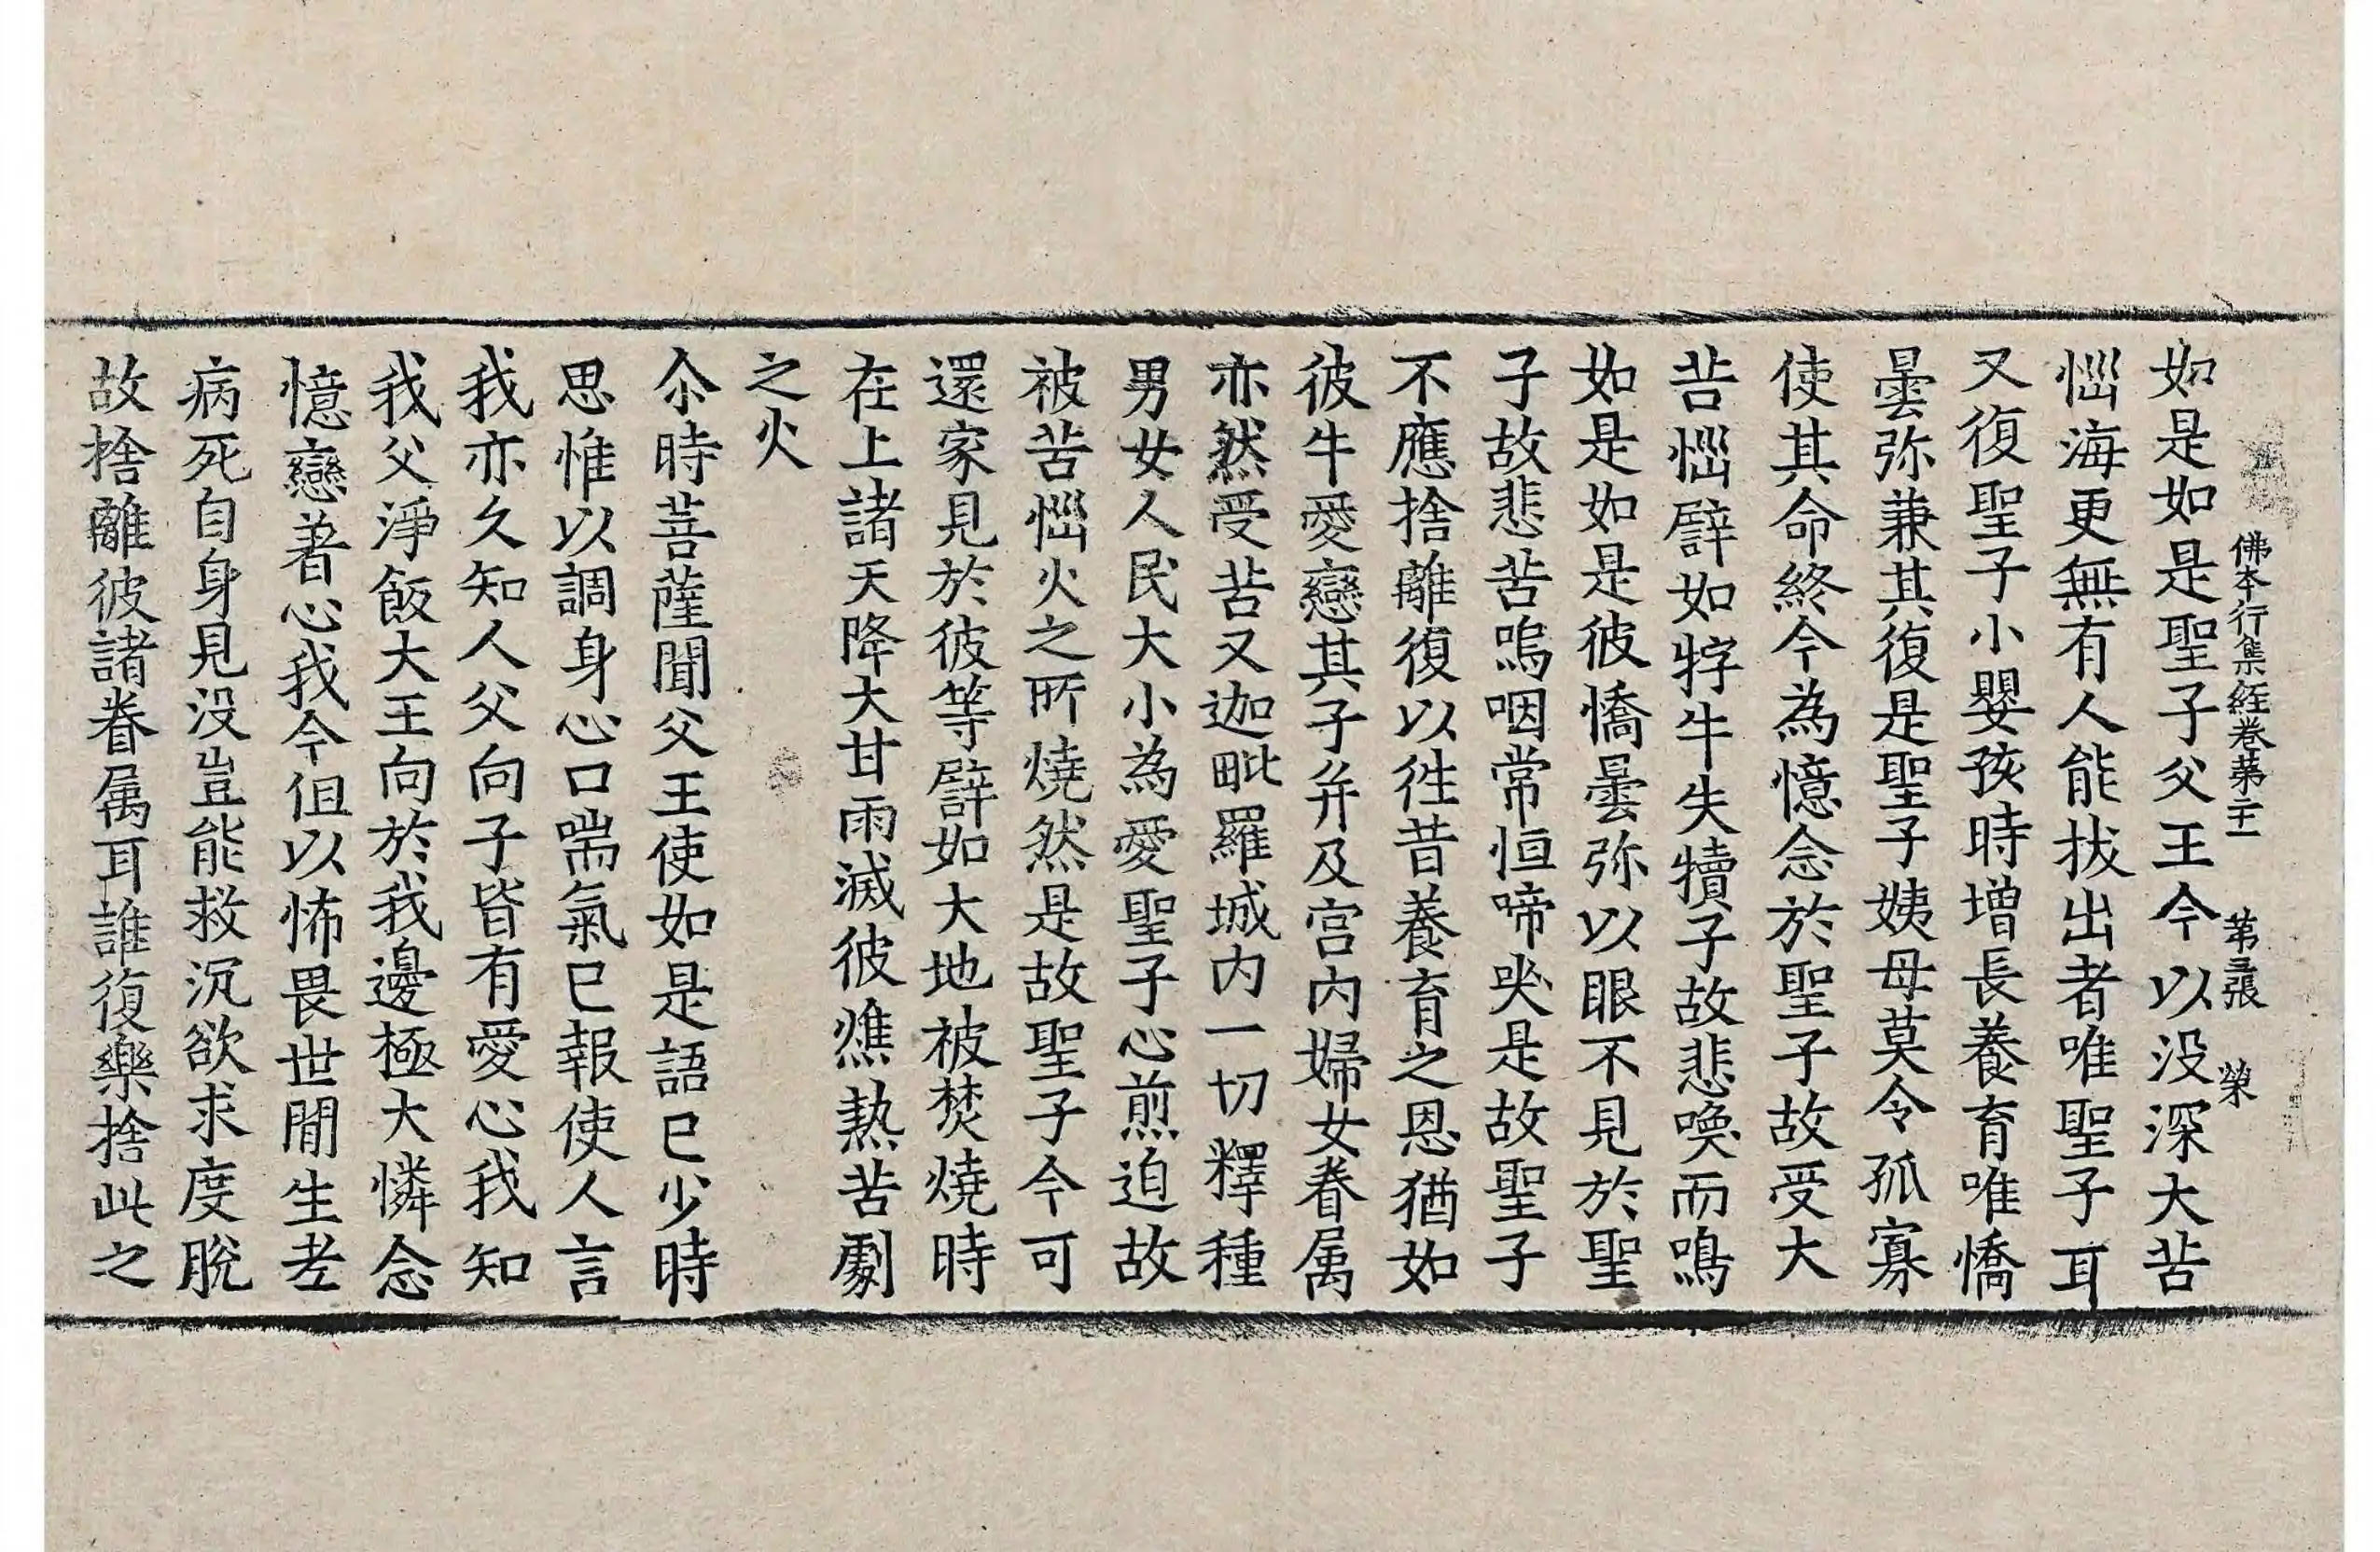 佛本行集經卷第二十一 第三張 榮
如是如是聖子父王今以没深大苦
惱海更無有人能拔出者唯聖子耳
又復聖子小嬰孩時增長養育唯憍
曇弥兼其復是聖子姨母莫令孤寡
使其命終今為憶念於聖子故受大
苦惱譬如牸牛失犢子故悲喚而鳴
如是如是彼憍曇弥以眼不見於聖
子故悲苦嗚咽常恒啼哭是故聖子
不應捨離復以徃昔養育之恩猶如
彼牛愛戀其子并及宫內婦女眷属
亦然受苦又迦毗羅城內一切釋種
男女人民大小為愛聖子心煎迫故
被苦惱火之所燒然是故聖子今可
還家見於彼等譬如大地被焚燒時
在上諸天降大甘雨滅彼燋熱苦劇
之火
尒時菩薩聞父王使如是語已少時
思惟以調身心口喘氣已報使人言
我亦久知人父向子皆有愛心我知
我父淨飯大王向於我邊極大憐念
憶戀著心我今但以怖畏世間生老
病死自身見没豈能救沉欲求度脫
故捨離彼諸眷属耳誰復樂捨此之